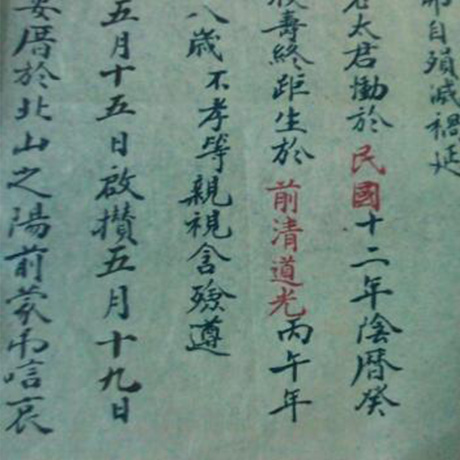 自殞滅禍延
太君慟於民國十二年陰曆癸
壽終距生於前清道光丙午年
八歲不孝等親視含殮遵
五月十五日啟攢五月十九日
安厝於北山之陽前蒙弔唁哀